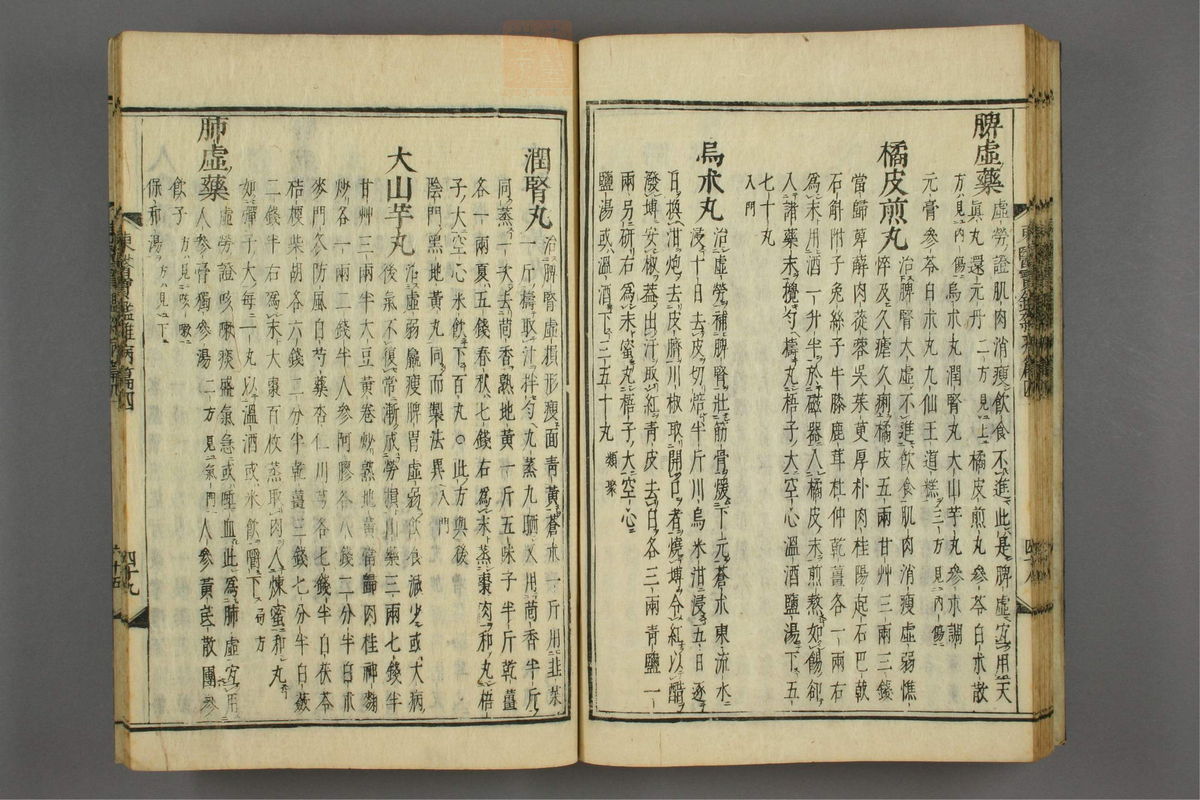 脾虛藥
虛勞證肌肉消瘦飮食不進此是脾虛宜用天
方見內傷
眞丸還元丹二方見上橘皮煎丸參苓白朮散
烏朮丸潤腎丸大山芋丸參朮調
元膏參苓白朮丸九仙王道糕三方見內傷
橘皮煎丸
治脾腎大虛不進飮食肌肉消瘦虛弱憔
悴及久瘧久痢橘皮五兩甘艸三兩三錢
當歸萆薢肉蓯蓉吳茱萸厚朴肉桂陽起石巴戟
石斛附子兔絲子牛膝鹿茸杜仲乾薑各一兩右
為末用酒一升半於磁器入橘皮末煎熬如餳卻
入諸藥末攪勻擣丸梧子大空心溫酒鹽湯下五
七十丸
入門
烏朮丸
治虛勞補脾腎壯筋骨煖下元蒼朮東流水
浸十日去皮切焙半斤川烏米泔浸五日逐
日換泔炮去皮臍川椒取開口者燒塼令紅以醋
潑塼安椒葢出汗取紅靑皮去白各三兩靑鹽一
兩另研右為末蜜丸梧子大空心
鹽湯或溫酒下三五十丸類聚
潤腎丸
治脾腎虛損形瘦面靑黃蒼朮一斤用韭菜
一斤擣取汁拌勻九蒸九晒又用茴香半斤
同蒸一次去茴香熟地黃一斤五味子半斤乾薑
各一兩夏五錢春秋七錢右為末蒸棗肉和丸梧
子大空心米飮下百丸○此方與後
陰門黑地黃丸同而製法異入門
大山芋丸
治虛弱羸瘦脾胃虛弱飮食減少或大病
後氣不復常漸成勞損山藥三兩七錢半
甘艸三兩半大豆黃卷炒熟地黃當歸肉桂神麴
炒各一兩二錢半人參阿膠各八錢二分半白朮
麥門冬防風白芍藥杏仁川芎各七錢半白茯苓
桔梗柴胡各六錢二分半乾薑三錢七分半白蘞
二錢半右為末大棗百枚蒸取肉入煉蜜和丸
如彈子大每一丸以溫酒或米飮嚼下局方
肺虛藥
虛勞證咳嗽痰盛氣急或唾血此為肺虛宜用
人參膏獨參湯二方見氣門人參黃芪散團參
飮子方見咳嗽
保和湯方見下
東醫寶鑑雜病篇四
四十九